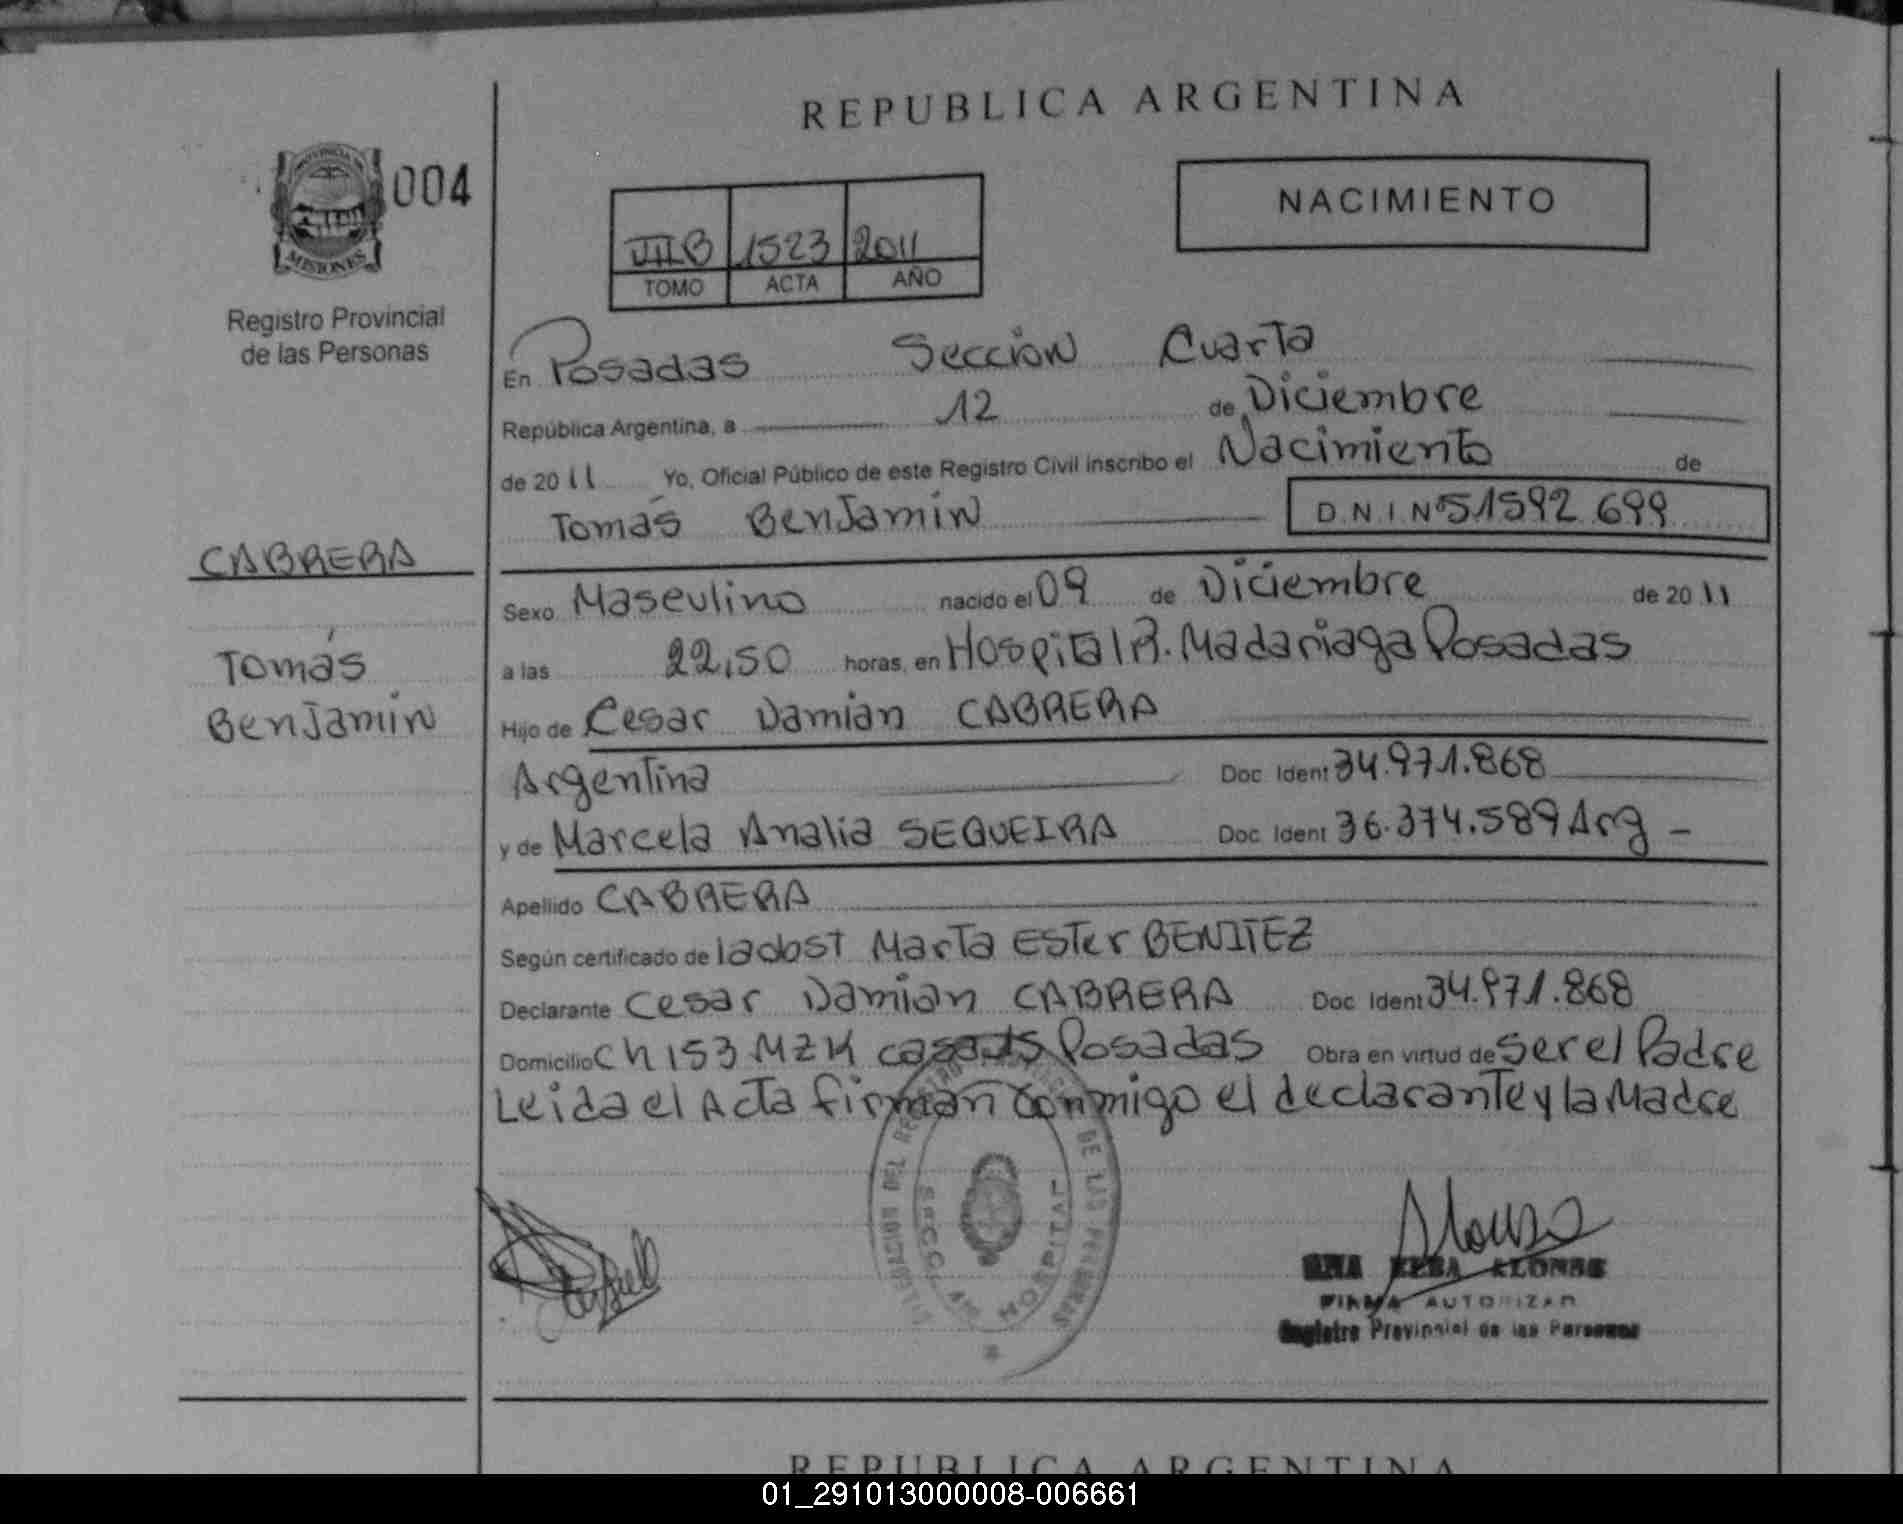 REPUBLICA ARGENTINA
PROVINCIA DE
MISIONES
004
Registro Provincial
de las Personas
NACIMIENTO
1523 2011
TOMO ACTA AÑO
En Posadas Seccion Cuarta
República Argentina, a 12 de Diciembre
de 2011 Yo, Oficial Público de este Registro Civil inscribo el Nacimiento de
Tomás Benjamin D.N.I Nº 51592 699
CABRERA
Tomás
Benjamin
Sexo Masculino nacido el 09 de Diciembre de 2011
a las 22,50 horas, en Hospital R. Madariaga Posadas
Hijo de Cesar Damian CABRERA
Argentina Doc. Ident 34.971.868
y de Marcela Analia SEQUEIRA Doc. Ident 36.374.589 Arg -
Apellido CABRERA
Según certificado de la obst Marta Ester BENITEZ
Declarante Cesar Damian CABRERA Doc. Ident 34.971.868
Domicilio Ch 153 MZ K Posadas Obra en virtud de ser el Padre
Leida el Acta firman conmigo el declarante y la Madre
DEL DE LAS PERSONAS
HOSPITAL
Alonso
ALONSO
FIRMA AUTORIZAD
Registro Provincial de las Personas
REPUBLICA ARGENTINA
01_291013000008-006661